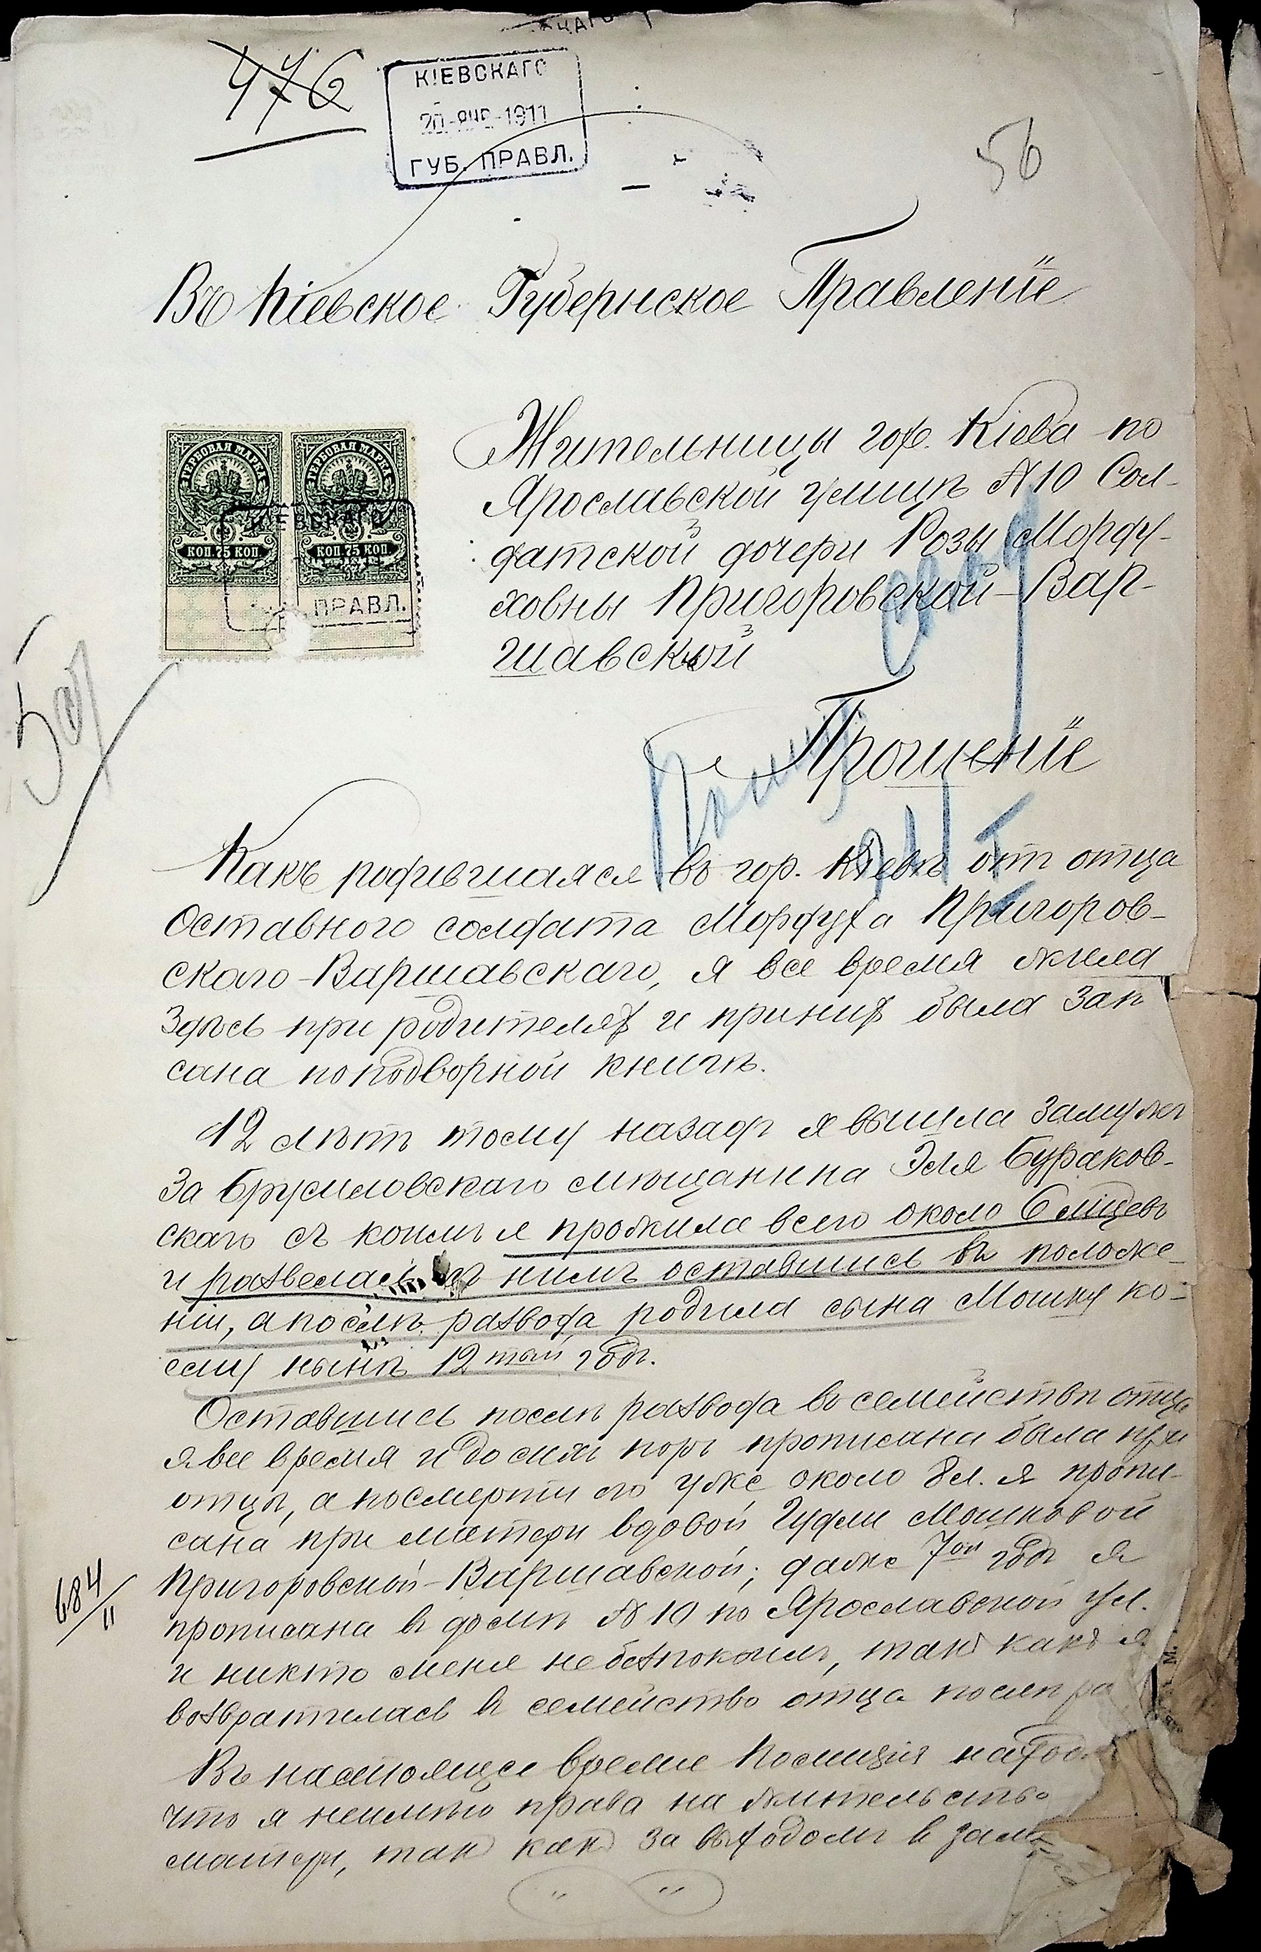 476
КІЕВСКАГО
20-ЯНВ-1911
ГУБ. ПРАВЛ.
56
Въ Кіевское Губернское Правленіе
ГЕРБОВАЯ МАРКА ГЕРБОВАЯ МАРКА
КОП. 75 КОП КОП. 75 КОП
КІЕВСКАГО
ПРАВЛ.
Жительницы гор. Кіева по
Ярославской улицѣ № 10 Сол-
датской дочери Розы Морду-
ховны Пригоровской-Вар-
шавской
Прошеніе
Какъ родившаяся въ гор. Кіевѣ от отца
Оставного солдата Мордуха Пригоров-
скаго-Варшавскаго, я все время жила
Здѣсь при родителях и при них была Запи
сана по подворной книгѣ.
12 лѣт тому назад я вышла замуж
За Брусиловскаго мѣщанина Эля Бураков-
скаго съ коимъ я прожила всего около 6 міцевъ
и развелась съ нимъ оставшись въ положе-
ніи, а послѣ развода родила сына Мошку ко-
ему нынѣ 12тый годъ.
Оставшись послѣ развода во семействѣ отца
я все время и до сихъ поръ прописана была при
отцы, а посмерти его уже около 8 л. я пропи-
сана при матери вдовой Гудли Мошковой
Пригоровской-Варшавской; даже 7ой годъ я
прописана в домѣ № 10 по Ярославской ул.
и никто меня не безпокоилъ, такъ какъ я
возвратилась в семейство отца послѣ ра
Въ настоящее время Полиція находи
что я неимѣю права на жительство
матери, такъ какъ за выходомъ в зам
684/11